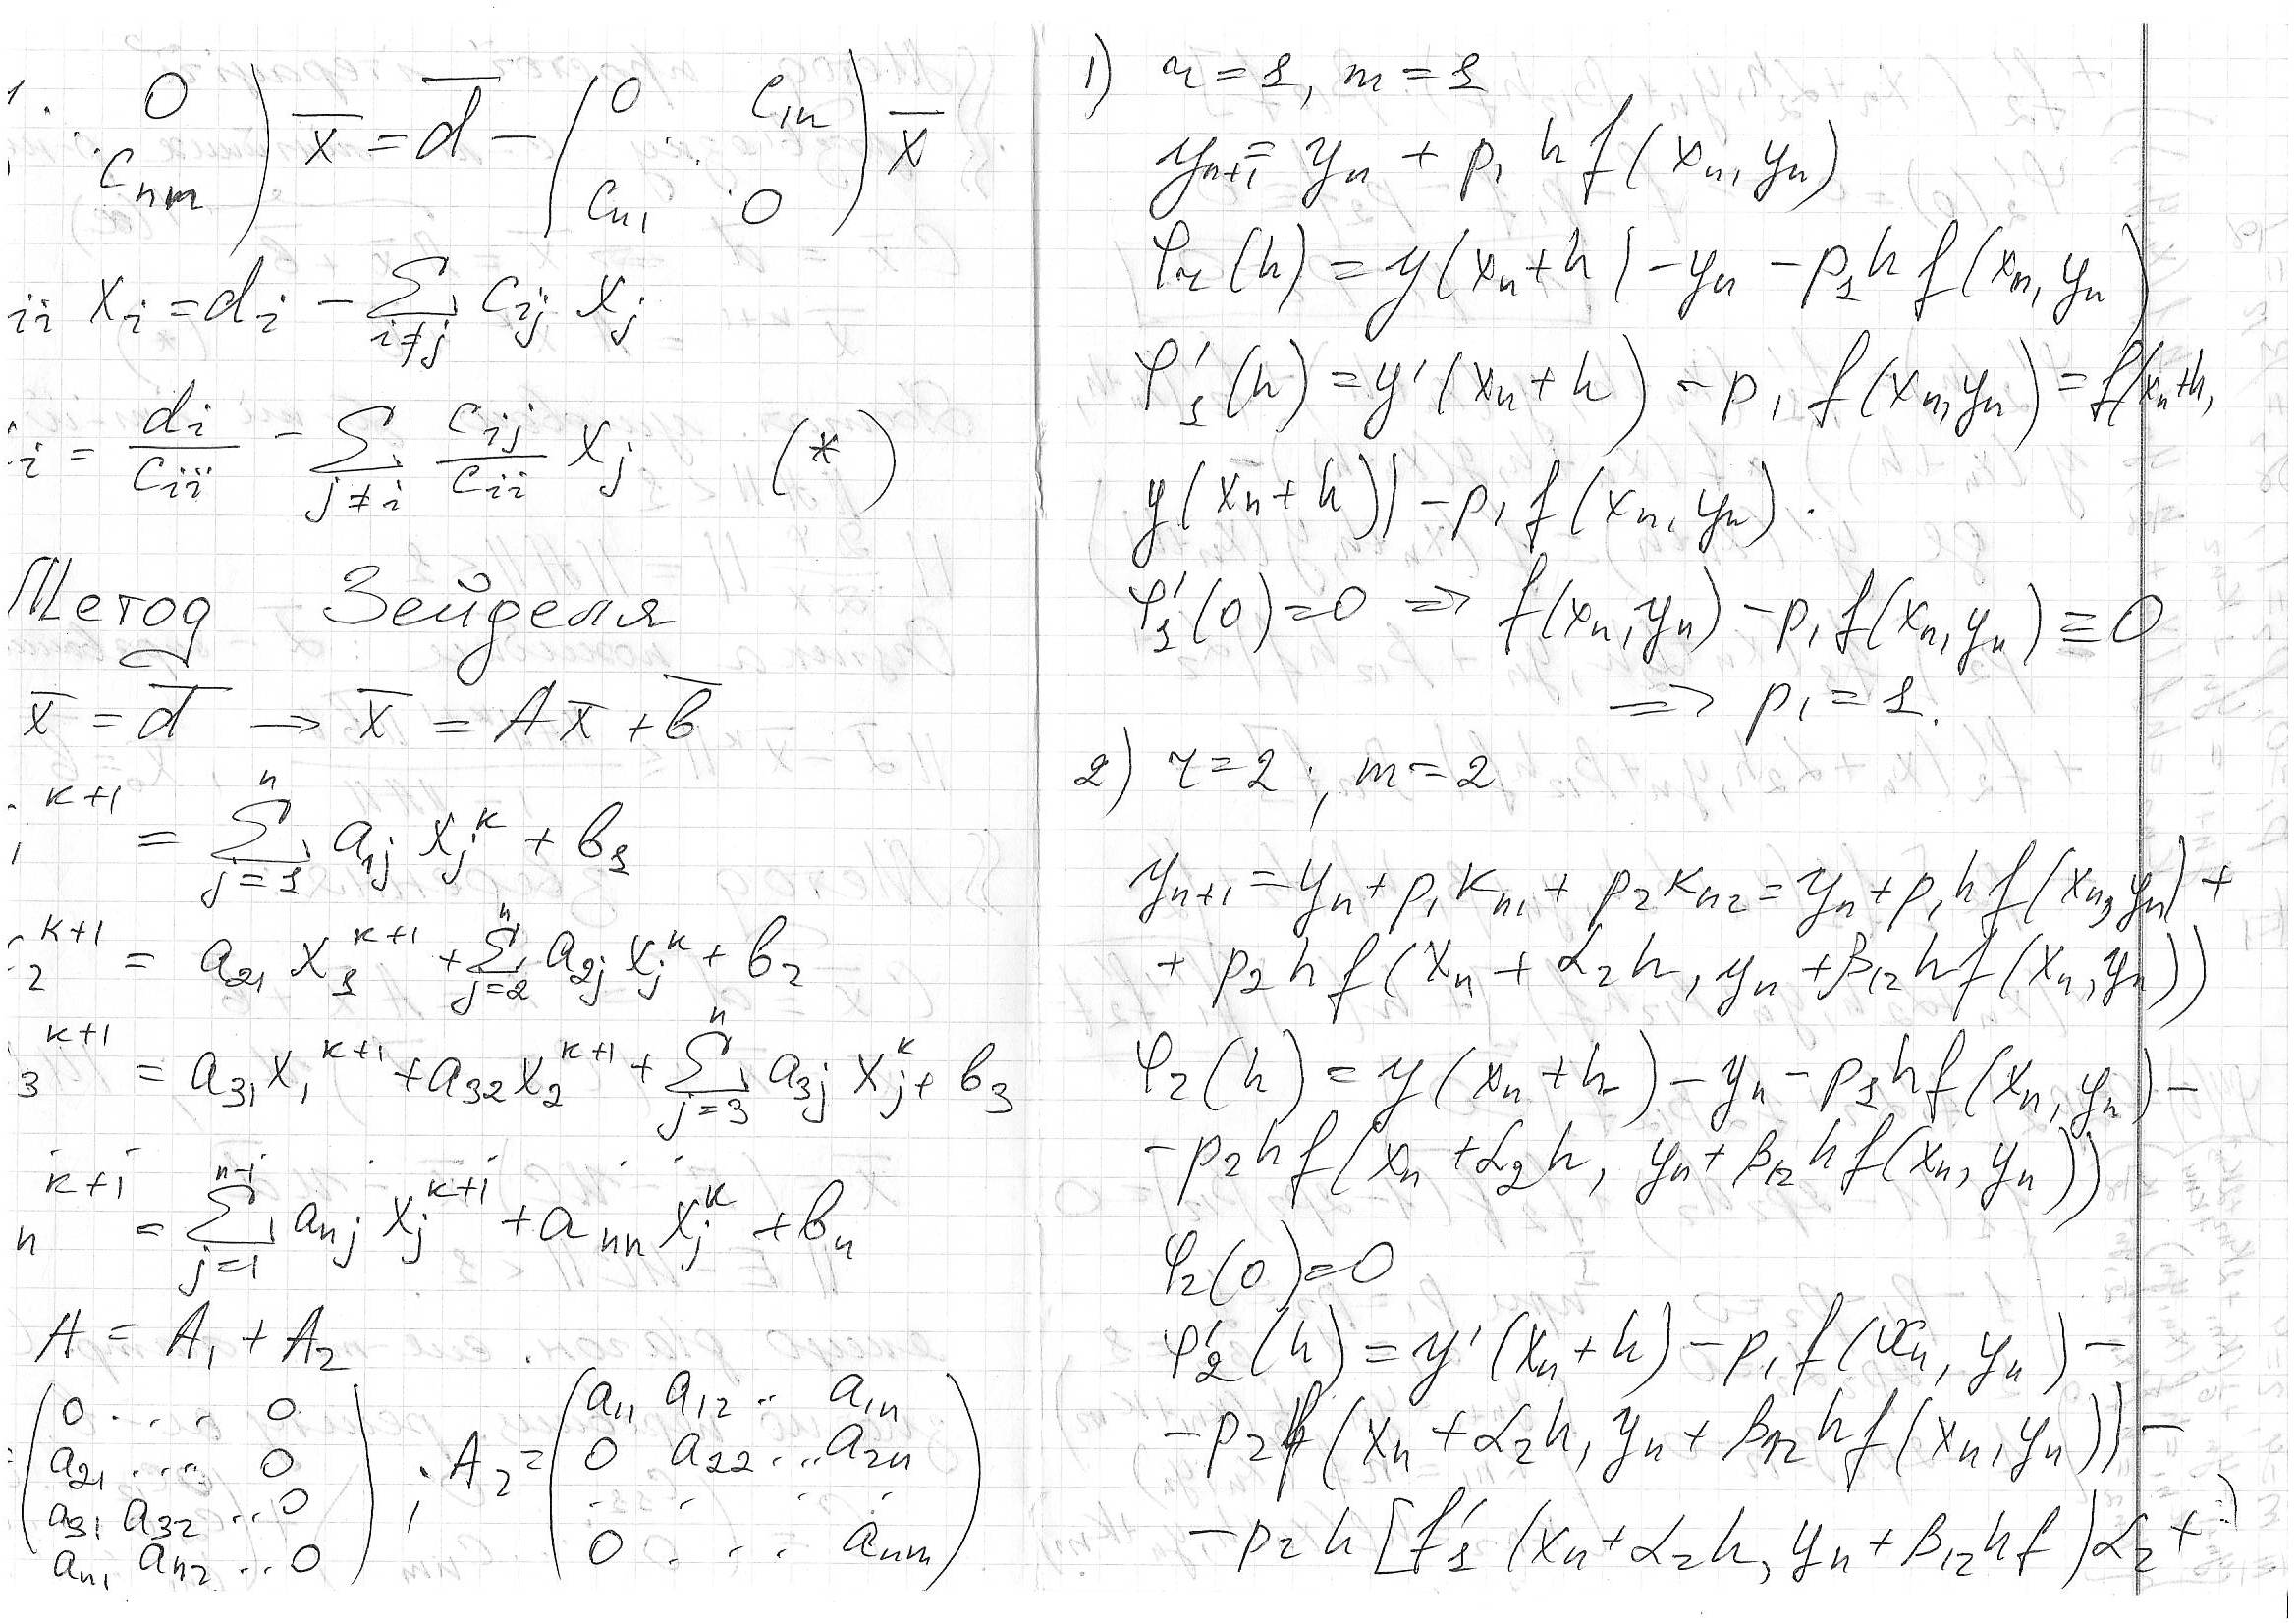 0
C_{nm} ) x̄ = d̄ − ( 0 C_{1n}
C_{n1} 0 ) x̄
_{ii} x_i = d_i − ∑_{i≠j} C_{ij} x_j
_i = d_i/C_{ii} − ∑_{j≠i} C_{ij}/C_{ii} x_j (*)
Метод Зейделя
x̄ = d̄ → x̄ = Ax̄ + b̄
_1^{k+1} = ∑_{j=1}^{n} a_{1j} x_j^k + b_1
_2^{k+1} = a_{21} x_1^{k+1} + ∑_{j=2}^{n} a_{2j} x_j^k + b_2
_3^{k+1} = a_{31} x_1^{k+1} + a_{32} x_2^{k+1} + ∑_{j=3}^{n} a_{3j} x_j^k + b_3
_n^{k+1} = ∑_{j=1}^{n-1} a_{nj} x_j^{k+1} + a_{nn} x_j^k + b_n
A = A_1 + A_2
= ( 0 .... 0
a_{21} .... 0
a_{31} a_{32} .. 0
a_{n1} a_{n2} .. 0 ) ; A_2 = ( a_{11} a_{12} .. a_{1n}
0 a_{22} ... a_{2n}
. . . .
0 . . . a_{nm} )
1) r = 1, m = 1
y_{n+1} = y_n + p_1 h f(x_n, y_n)
φ_r(h) = y(x_n + h) − y_n − p_1 h f(x_n, y_n)
φ'_1(h) = y'(x_n + h) − p_1 f(x_n, y_n) = f(x_n + h,
y(x_n + h)) − p_1 f(x_n, y_n).
φ'_1(0) = 0 ⇒ f(x_n, y_n) − p_1 f(x_n, y_n) ≡ 0
⇒ p_1 = 1.
2) r = 2; m = 2
y_{n+1} = y_n + p_1 k_{n1} + p_2 k_{n2} = y_n + p_1 h f(x_n, y_n) +
+ p_2 h f(x_n + α_2 h, y_n + β_{12} h f(x_n, y_n))
φ_2(h) = y(x_n + h) − y_n − p_1 h f(x_n, y_n) −
− p_2 h f(x_n + α_2 h, y_n + β_{12} h f(x_n, y_n))
φ_2(0) = 0
φ'_2(h) = y'(x_n + h) − p_1 f(x_n, y_n) −
− p_2 f(x_n + α_2 h, y_n + β_{12} h f(x_n, y_n)) −
− p_2 h [f'_1 (x_n + α_2 h, y_n + β_{12} h f) α_2 +